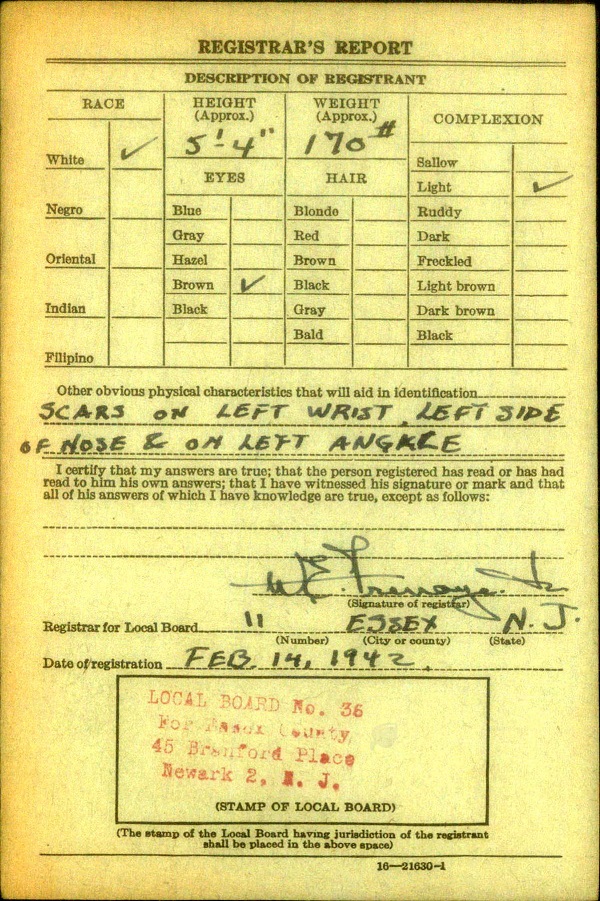 REGISTRAR'S REPORT
DESCRIPTION OF REGISTRANT
RACE
HEIGHT
(Approx.)
WEIGHT
(Approx.)
COMPLEXION
5'-4"
170#
White ✓
EYES
HAIR
Sallow
Light ✓
Negro
Blue
Blonde
Ruddy
Gray
Red
Dark
Oriental
Hazel
Brown
Freckled
Brown ✓
Black
Light brown
Indian
Black
Gray
Dark brown
Bald
Black
Filipino
Other obvious physical characteristics that will aid in identification
SCARS ON LEFT WRIST, LEFT SIDE
OF NOSE & ON LEFT
I certify that my answers are true; that the person registered has read or has had
read to him his own answers; that I have witnessed his signature or mark and that
all of his answers of which I have knowledge are true, except as follows:
(Signature of registrar)
Registrar for Local Board 11 ESSEX N. J.
(Number) (City or county) (State)
Date of registration FEB. 14, 1942.
LOCAL BOARD No. 36
For Essex County
45 Branford Place
Newark 2, N. J.
(STAMP OF LOCAL BOARD)
(The stamp of the Local Board having jurisdiction of the registrant
shall be placed in the above space)
16—21630-1